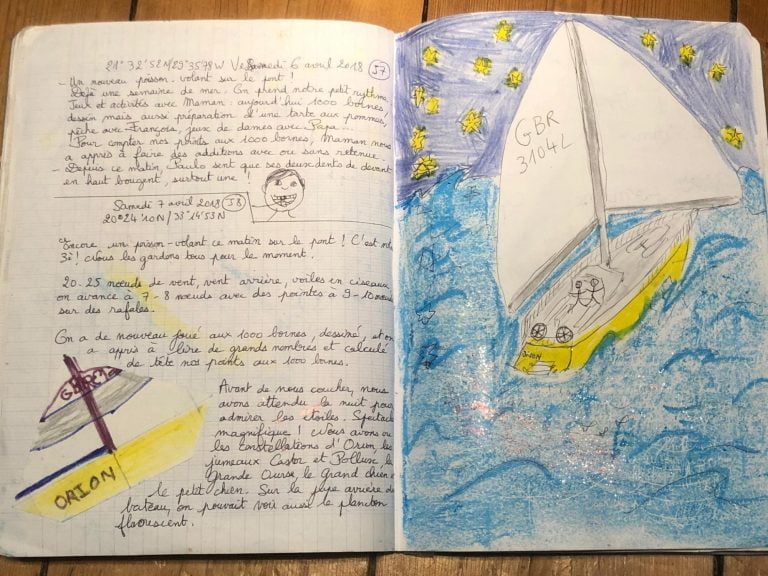 21° 32'52N/29°3579W Ve Samedi 6 avril 2018 57
- Un nouveau poisson-volant sur le pont !
Déjà une semaine de mer : On prend notre petit rythme
Jeux et activités avec Maman : aujourd'hui 1000 bornes,
dessin mais aussi préparation d'une tarte aux pommes,
pêche avec François, jeux de dames avec Papa...
Pour compter nos points aux 1000 bornes, Maman nous
a appris à faire des additions avec ou sans retenue
- Depuis ce matin, Paulo sent que ses deux dents de devant
en haut bougent, surtout une !
Samedi 7 avril 2018 58
20°24 10N/33°14'53N
Encore un poisson-volant ce matin sur le pont ! C'est
3è ! Nous les gardons tous pour le moment.
20-25 nœuds de vent, vent arrière, voiles en ciseaux
on avance à 7-8 nœuds avec des pointes à 9-10 nœuds
sur des rafales.
On a de nouveau joué aux 1000 bornes, dessiné, et on
a appris à lire de grands nombres et calculé
de tête nos points aux 1000 bornes.
Avant de nous coucher, nous
avons attendu la nuit pour
admirer les étoiles. Spectacle
magnifique ! Nous avons vu
les constellations d'Orion, les
jumeaux Castor et Pollux, la
Grande Ourse, le Grand chien et
le petit chien. Sur la jupe arrière du
bateau, on pouvait voir aussi le plancton
fluorescent.
ORION
GBR
3104L
ORION